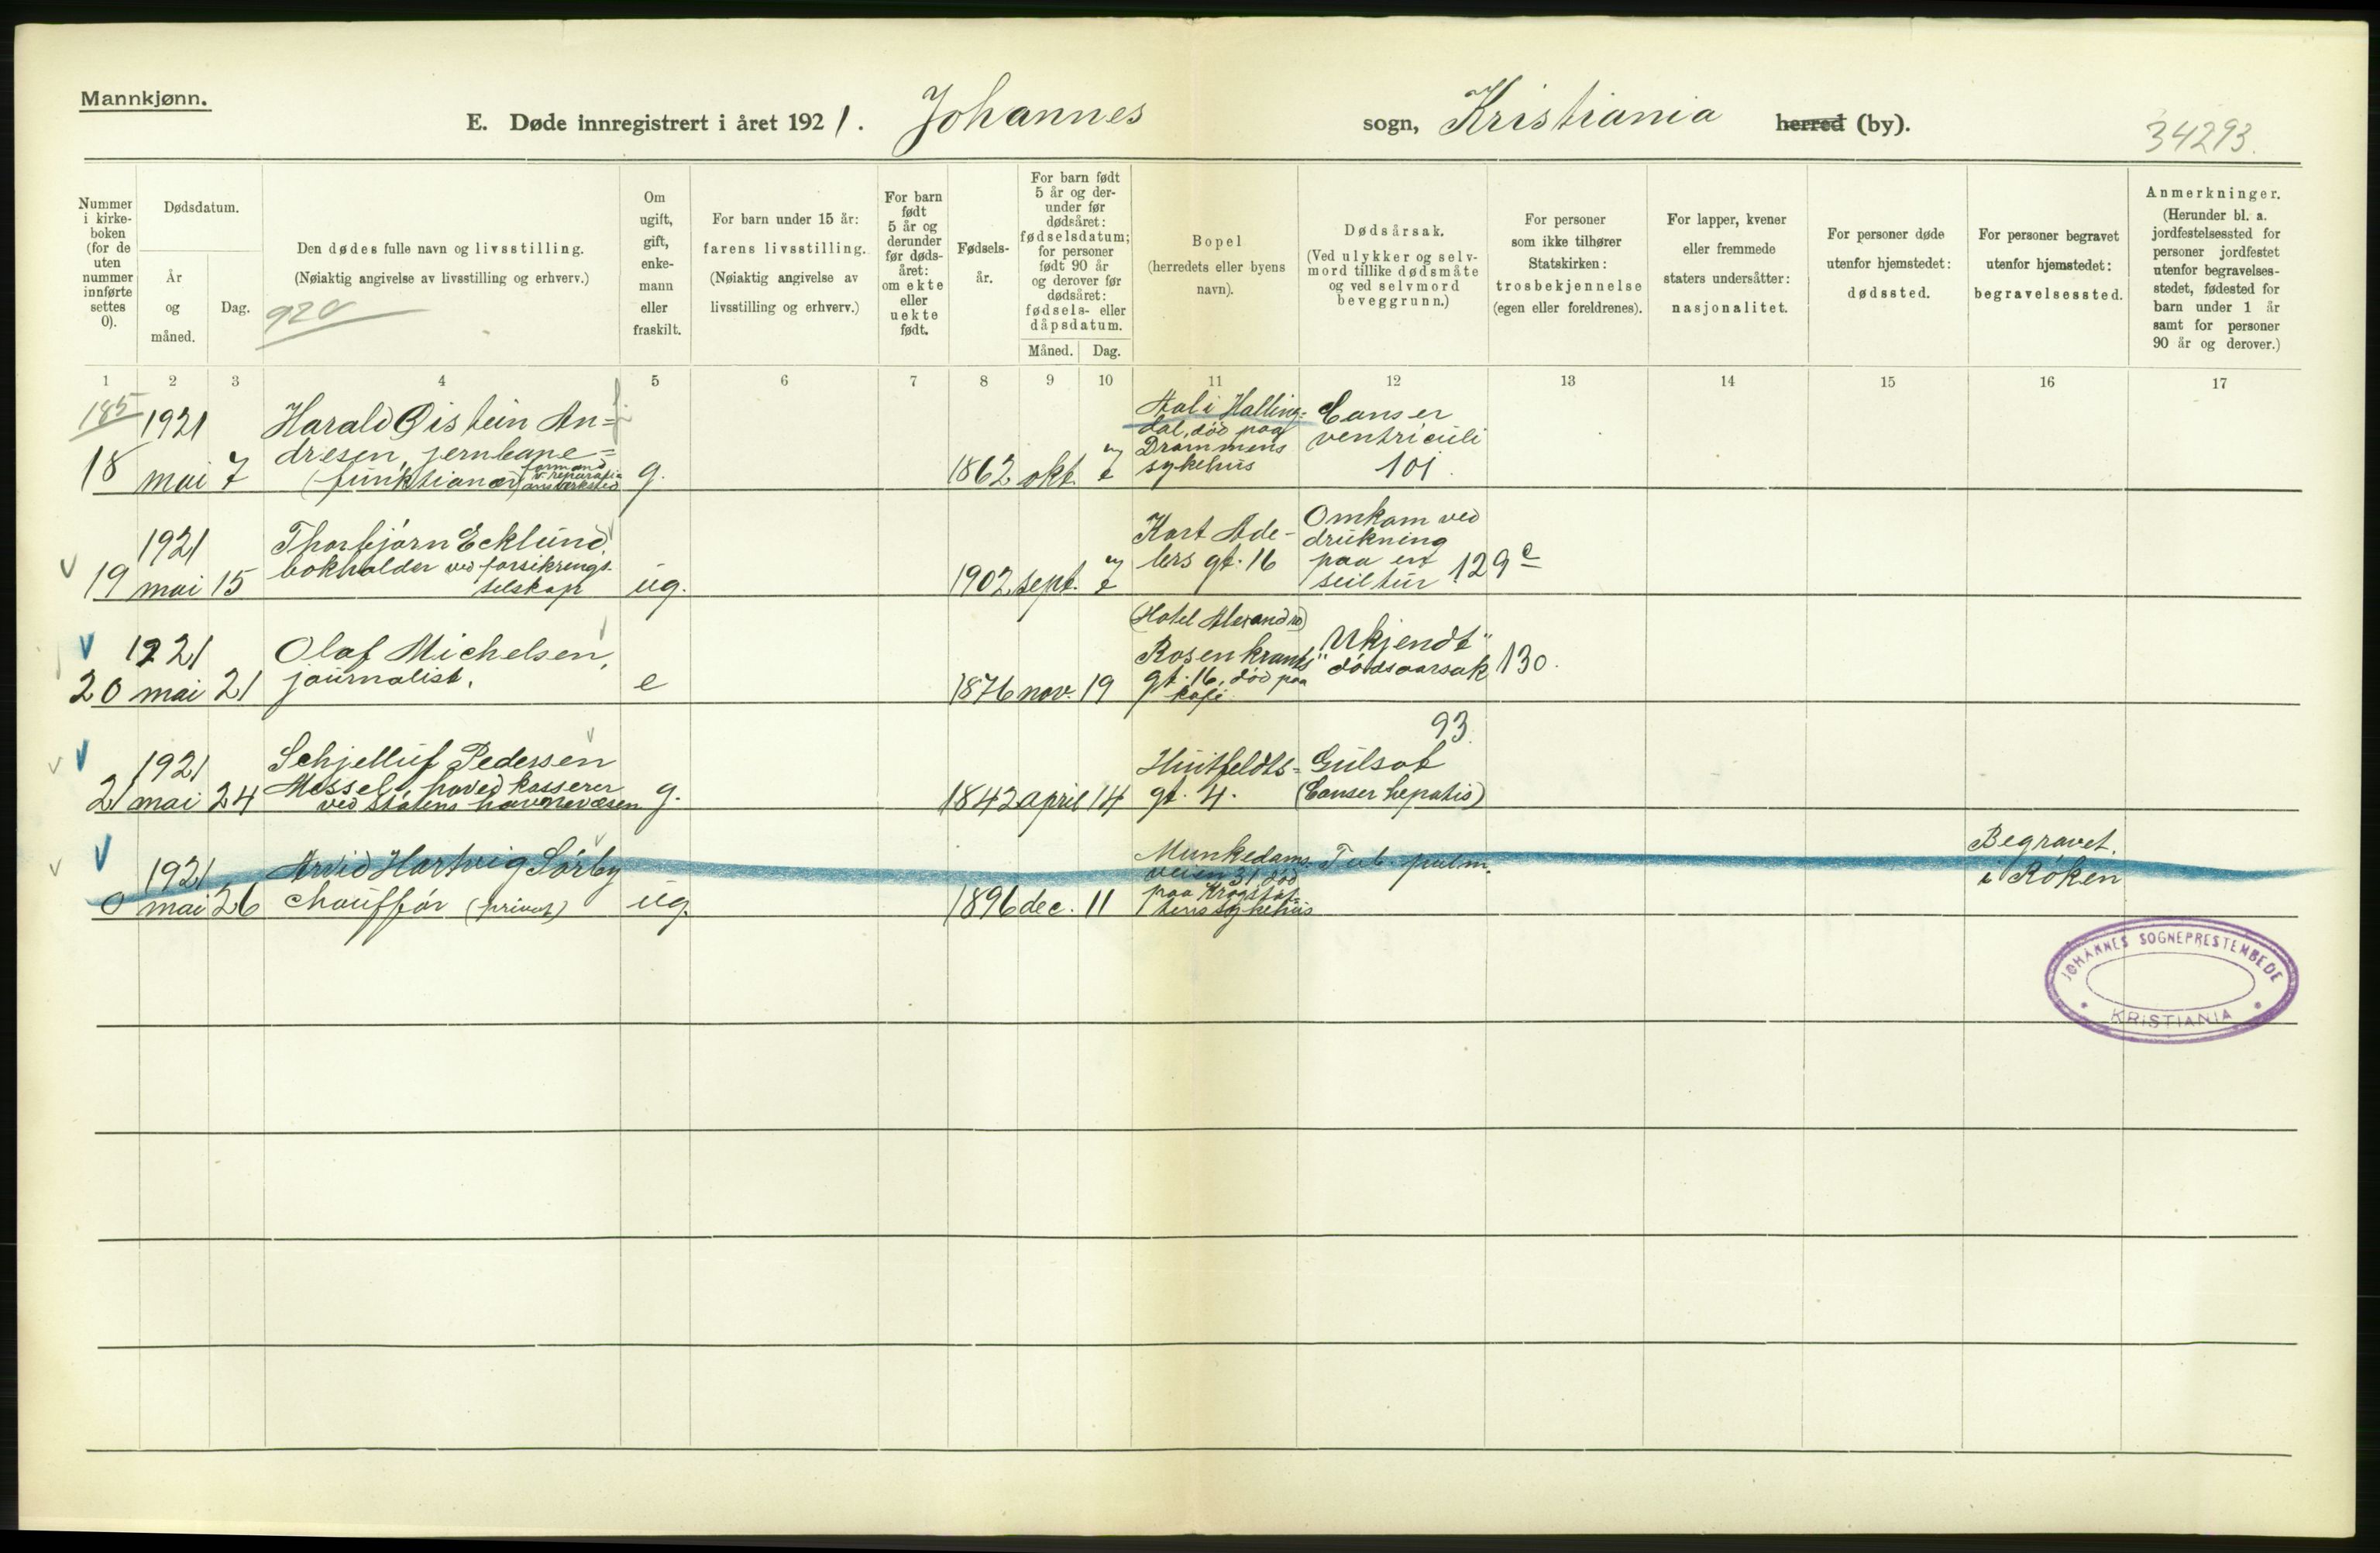 Mannkjønn.
E. Døde innregistrert i året 1921. Johannes sogn, Kristiania herred (by).
34293.
Nummer i kirkeboken (for de uten nummer innførte settes 0).
Dødsdatum.
År og måned.
Dag.
Den dødes fulle navn og livsstilling.
(Nøiaktig angivelse av livsstilling og erhverv.)
920
Om ugift, gift, enkemann eller fraskilt.
For barn under 15 år:
farens livsstilling.
(Nøiaktig angivelse av livsstilling og erhverv.)
For barn født 5 år og derunder før dødsåret: om ekte eller uekte født.
Fødselsår.
For barn født 5 år og derunder før dødsåret: fødselsdatum; for personer født 90 år og derover før dødsåret: fødsels- eller dåpsdatum.
Måned. Dag.
Bopel
(herredets eller byens navn).
Dødsårsak.
(Ved ulykker og selvmord tillike dødsmåte og ved selvmord beveggrunn.)
For personer som ikke tilhører Statskirken: trosbekjennelse (egen eller foreldrenes).
For lapper, kvener eller fremmede staters undersåtter: nasjonalitet.
For personer døde utenfor hjemstedet: dødssted.
For personer begravet utenfor hjemstedet: begravelsessted.
Anmerkninger.
(Herunder bl. a. jordfestelsessted for personer jordfestet utenfor begravelsesstedet, fødested for barn under 1 år samt for personer 90 år og derover.)
1 2 3 4 5 6 7 8 9 10 11 12 13 14 15 16 17
185
18 1921 mai 7
Harald Øistein An=
dresen, jernbane=
(funktionær) formand v. reparations verksted
g. 1862 okt.
Aal i Halling=
dal, død paa
Drammens
sykehus
Canser
ventriculi
101.
19 1921 mai 15
Thorbjørn Ecklund,
bokholder ved forsikrings
selskap
ug. 1902 sept.
Kort Ade-
lers gt. 16
Omkom ved
drukning
paa en
seiltur 129 c
20 1921 mai 21
Olaf Michelsen,
journalist.
e 1876 nov. 19
(Hotel Alexandra)
Rosenkrants"
gt. 16, død paa
kafe.
Ukjendt"
dødsaarsak 130.
21 1921 mai 24
Schjelluf Pedersen
Mossel, hovedkasserer
ved Statens havnevæsen
g. 1842 april 14
Huitfeldts=
gt. 4.
93.
Gulsot
(Canser hepatis)
0 1921 mai 26
Arvid Hartvig Sørby
chauffør (privat)
ug. 1896 dec. 11
Munkedams-
veien 31 død
paa Krogstøt-
tens sykehus
Tub. pulm.
Begravet.
i Røken
JOHANNES SOGNEPRESTEMBEDE
KRISTIANIA